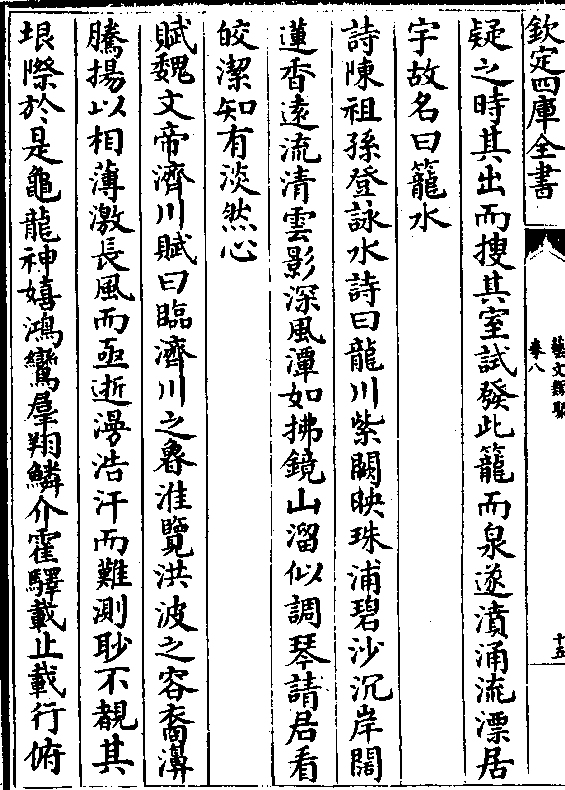 欽定四庫全書
藝文類聚
卷八
十五
疑之時其出而搜其室試發此籠而泉遂濆涌流漂居
宇故名曰籠水
詩陳祖孫登詠水詩曰龍川紫闕映珠浦碧沙沉岸闊
蓮香遠流清雲影深風潭如拂鏡山溜似調琴請君看
皎潔知有淡然心
賦魏文帝濟川賦曰臨濟川之魯淮覽洪波之容裔濞
騰揚以相薄激長風而亟逝漫浩汗而難測眇不覩其
垠際於是龜龍神嬉鴻鸞羣翔鱗介霍驛載止載行俯